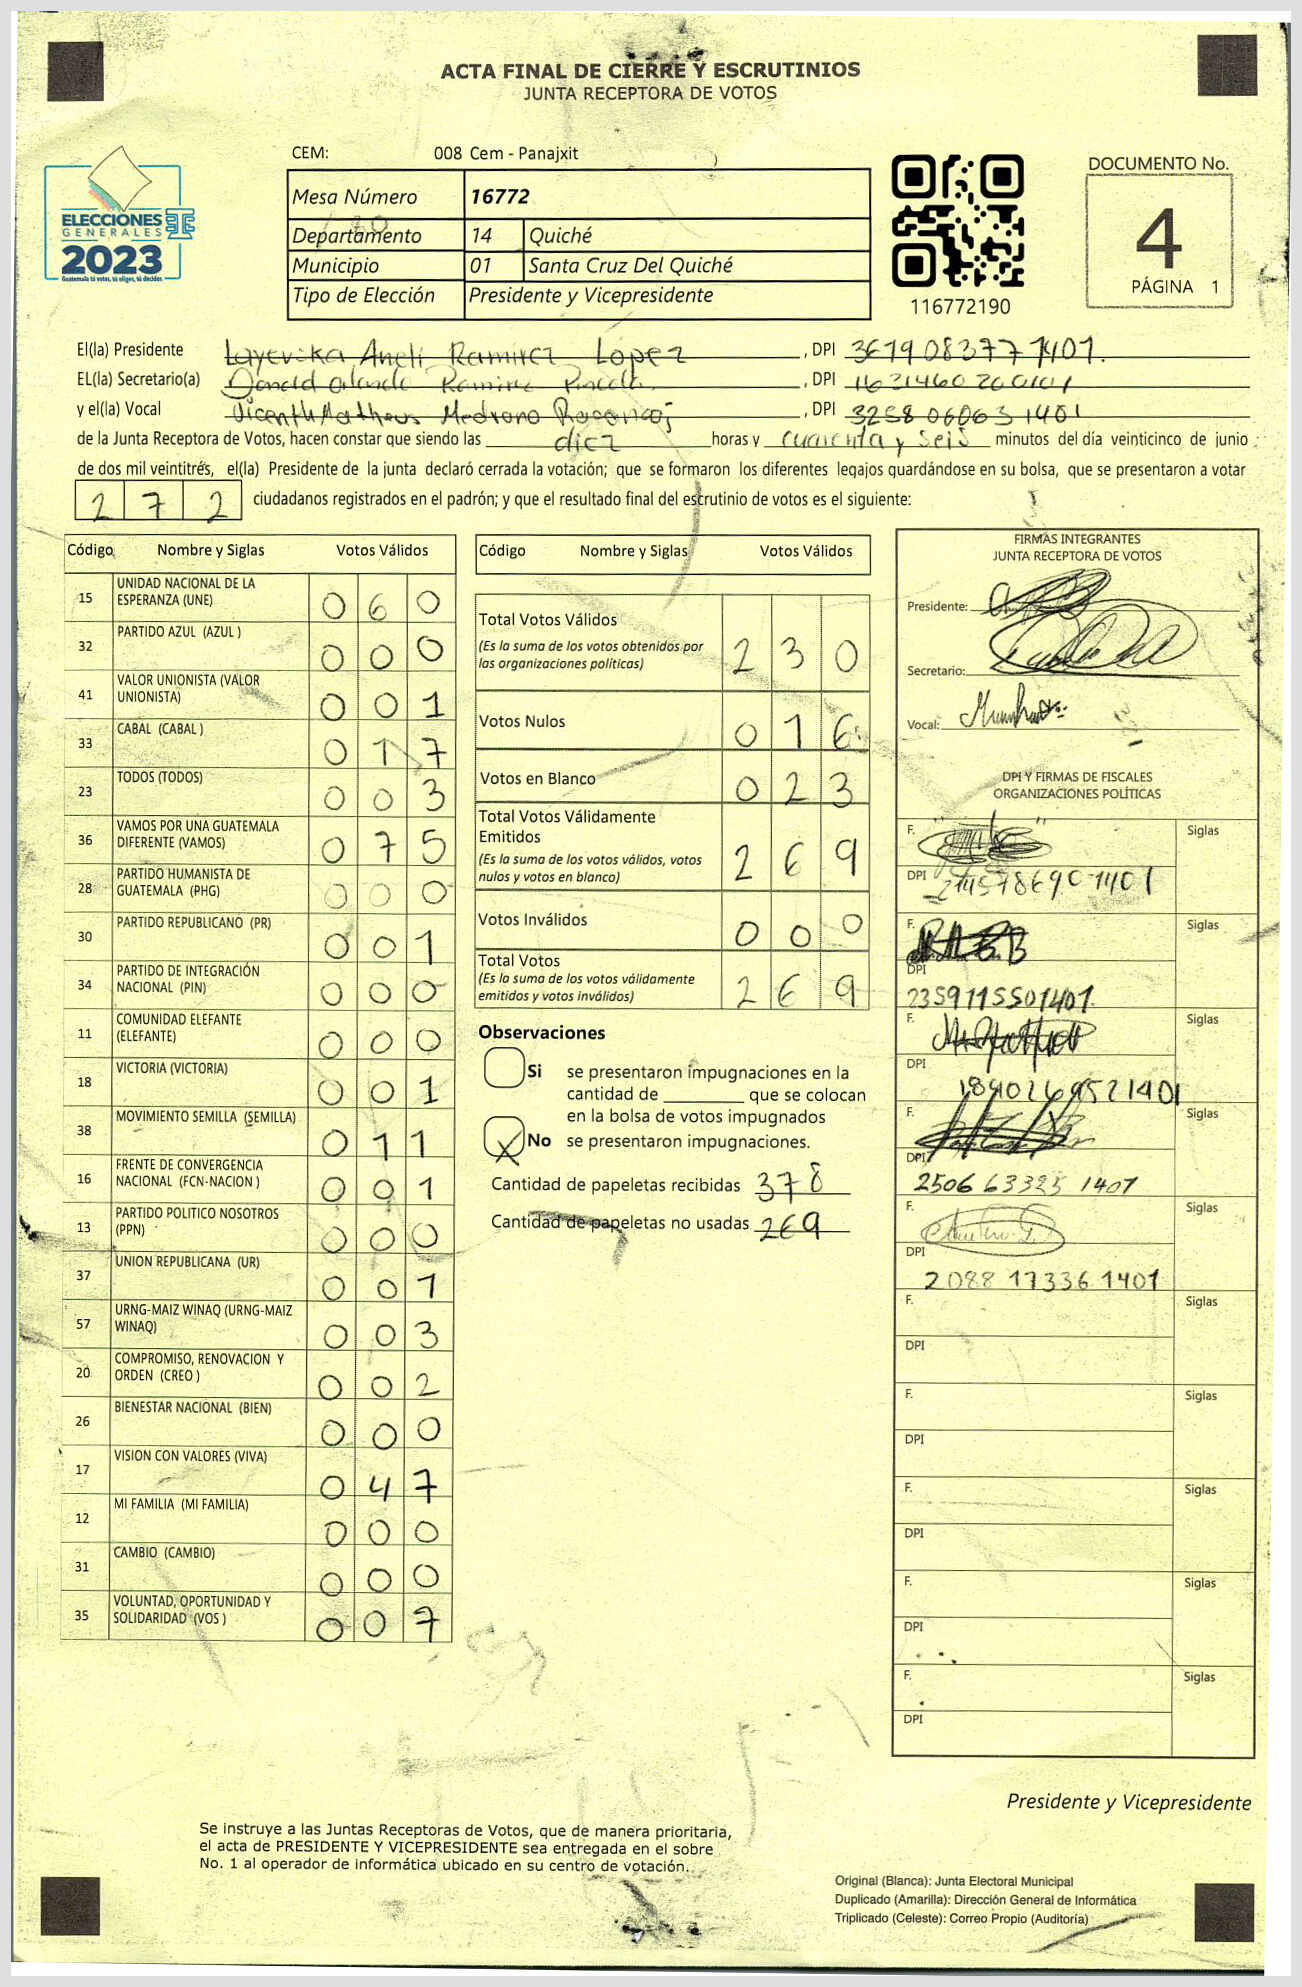 ACTA FINAL DE CIERRE Y ESCRUTINIOS
JUNTA RECEPTORA DE VOTOS
ELECCIONES
GENERALES
2023
Guatemala tú votas, tú eliges, tú decides
CEM: 008 Cem - Panajxit
Mesa Número 16772
Departamento 14 Quiché
Municipio 01 Santa Cruz Del Quiché
Tipo de Elección Presidente y Vicepresidente
116772190
DOCUMENTO No.
4
PÁGINA 1
El(la) Presidente Aneli Ramirez Lopez, DPI 3619083771401.
EL(la) Secretario(a) Donald Orlando Ramirez, DPI
y el(la) Vocal Vicenth Matheus Medrano, DPI 3258060631401
de la Junta Receptora de Votos, hacen constar que siendo las diez horas y cuarenta y seis minutos del día veinticinco de junio
de dos mil veintitrés, el(la) Presidente de la junta declaró cerrada la votación; que se formaron los diferentes legajos quardándose en su bolsa, que se presentaron a votar
272 ciudadanos registrados en el padrón; y que el resultado final del escrutinio de votos es el siguiente:
Código Nombre y Siglas Votos Válidos
15 UNIDAD NACIONAL DE LA ESPERANZA (UNE) 0 6 0
32 PARTIDO AZUL (AZUL ) 0 0 0
41 VALOR UNIONISTA (VALOR UNIONISTA) 0 0 1
33 CABAL (CABAL ) 0 1 7
23 TODOS (TODOS) 0 0 3
36 VAMOS POR UNA GUATEMALA DIFERENTE (VAMOS) 0 7 5
28 PARTIDO HUMANISTA DE GUATEMALA (PHG) 0 0 0
30 PARTIDO REPUBLICANO (PR) 0 0 1
34 PARTIDO DE INTEGRACIÓN NACIONAL (PIN) 0 0 0
11 COMUNIDAD ELEFANTE (ELEFANTE) 0 0 0
18 VICTORIA (VICTORIA) 0 0 1
38 MOVIMIENTO SEMILLA (SEMILLA) 0 1 1
16 FRENTE DE CONVERGENCIA NACIONAL (FCN-NACION ) 0 0 1
13 PARTIDO POLITICO NOSOTROS (PPN) 0 0 0
37 UNION REPUBLICANA (UR) 0 0 1
57 URNG-MAIZ WINAQ (URNG-MAIZ WINAQ) 0 0 3
20 COMPROMISO, RENOVACION Y ORDEN (CREO ) 0 0 2
26 BIENESTAR NACIONAL (BIEN) 0 0 0
17 VISION CON VALORES (VIVA) 0 4 7
12 MI FAMILIA (MI FAMILIA) 0 0 0
31 CAMBIO (CAMBIO) 0 0 0
35 VOLUNTAD, OPORTUNIDAD Y SOLIDARIDAD (VOS ) 0 0 7
Código Nombre y Siglas Votos Válidos
Total Votos Válidos 2 3 0
(Es la suma de los votos obtenidos por
las organizaciones políticas)
Votos Nulos 0 1 6
Votos en Blanco 0 2 3
Total Votos Válidamente
Emitidos 2 6 9
(Es la suma de los votos válidos, votos
nulos y votos en blanco)
Votos Inválidos 0 0 0
Total Votos 2 6 9
(Es la suma de los votos válidamente
emitidos y votos inválidos)
Observaciones
Si se presentaron impugnaciones en la
cantidad de ________ que se colocan
en la bolsa de votos impugnados
X No se presentaron impugnaciones.
Cantidad de papeletas recibidas 378
Cantidad de papeletas no usadas 269
FIRMAS INTEGRANTES
JUNTA RECEPTORA DE VOTOS
Presidente:
Secretario:
Vocal:
DPI Y FIRMAS DE FISCALES
ORGANIZACIONES POLÍTICAS
F. Siglas
DPI
F. Siglas
DPI
2359115501401
F. Siglas
DPI
1890269521401
F. Siglas
DPI
2506 63325 1401
F. Siglas
DPI
2088 17336 1401
F. Siglas
DPI
F. Siglas
DPI
F. Siglas
DPI
F. Siglas
DPI
F. Siglas
DPI
Presidente y Vicepresidente
Se instruye a las Juntas Receptoras de Votos, que de manera prioritaria,
el acta de PRESIDENTE Y VICEPRESIDENTE sea entregada en el sobre
No. 1 al operador de informática ubicado en su centro de votación.
Original (Blanca): Junta Electoral Municipal
Duplicado (Amarilla): Dirección General de Informática
Triplicado (Celeste): Correo Propio (Auditoría)